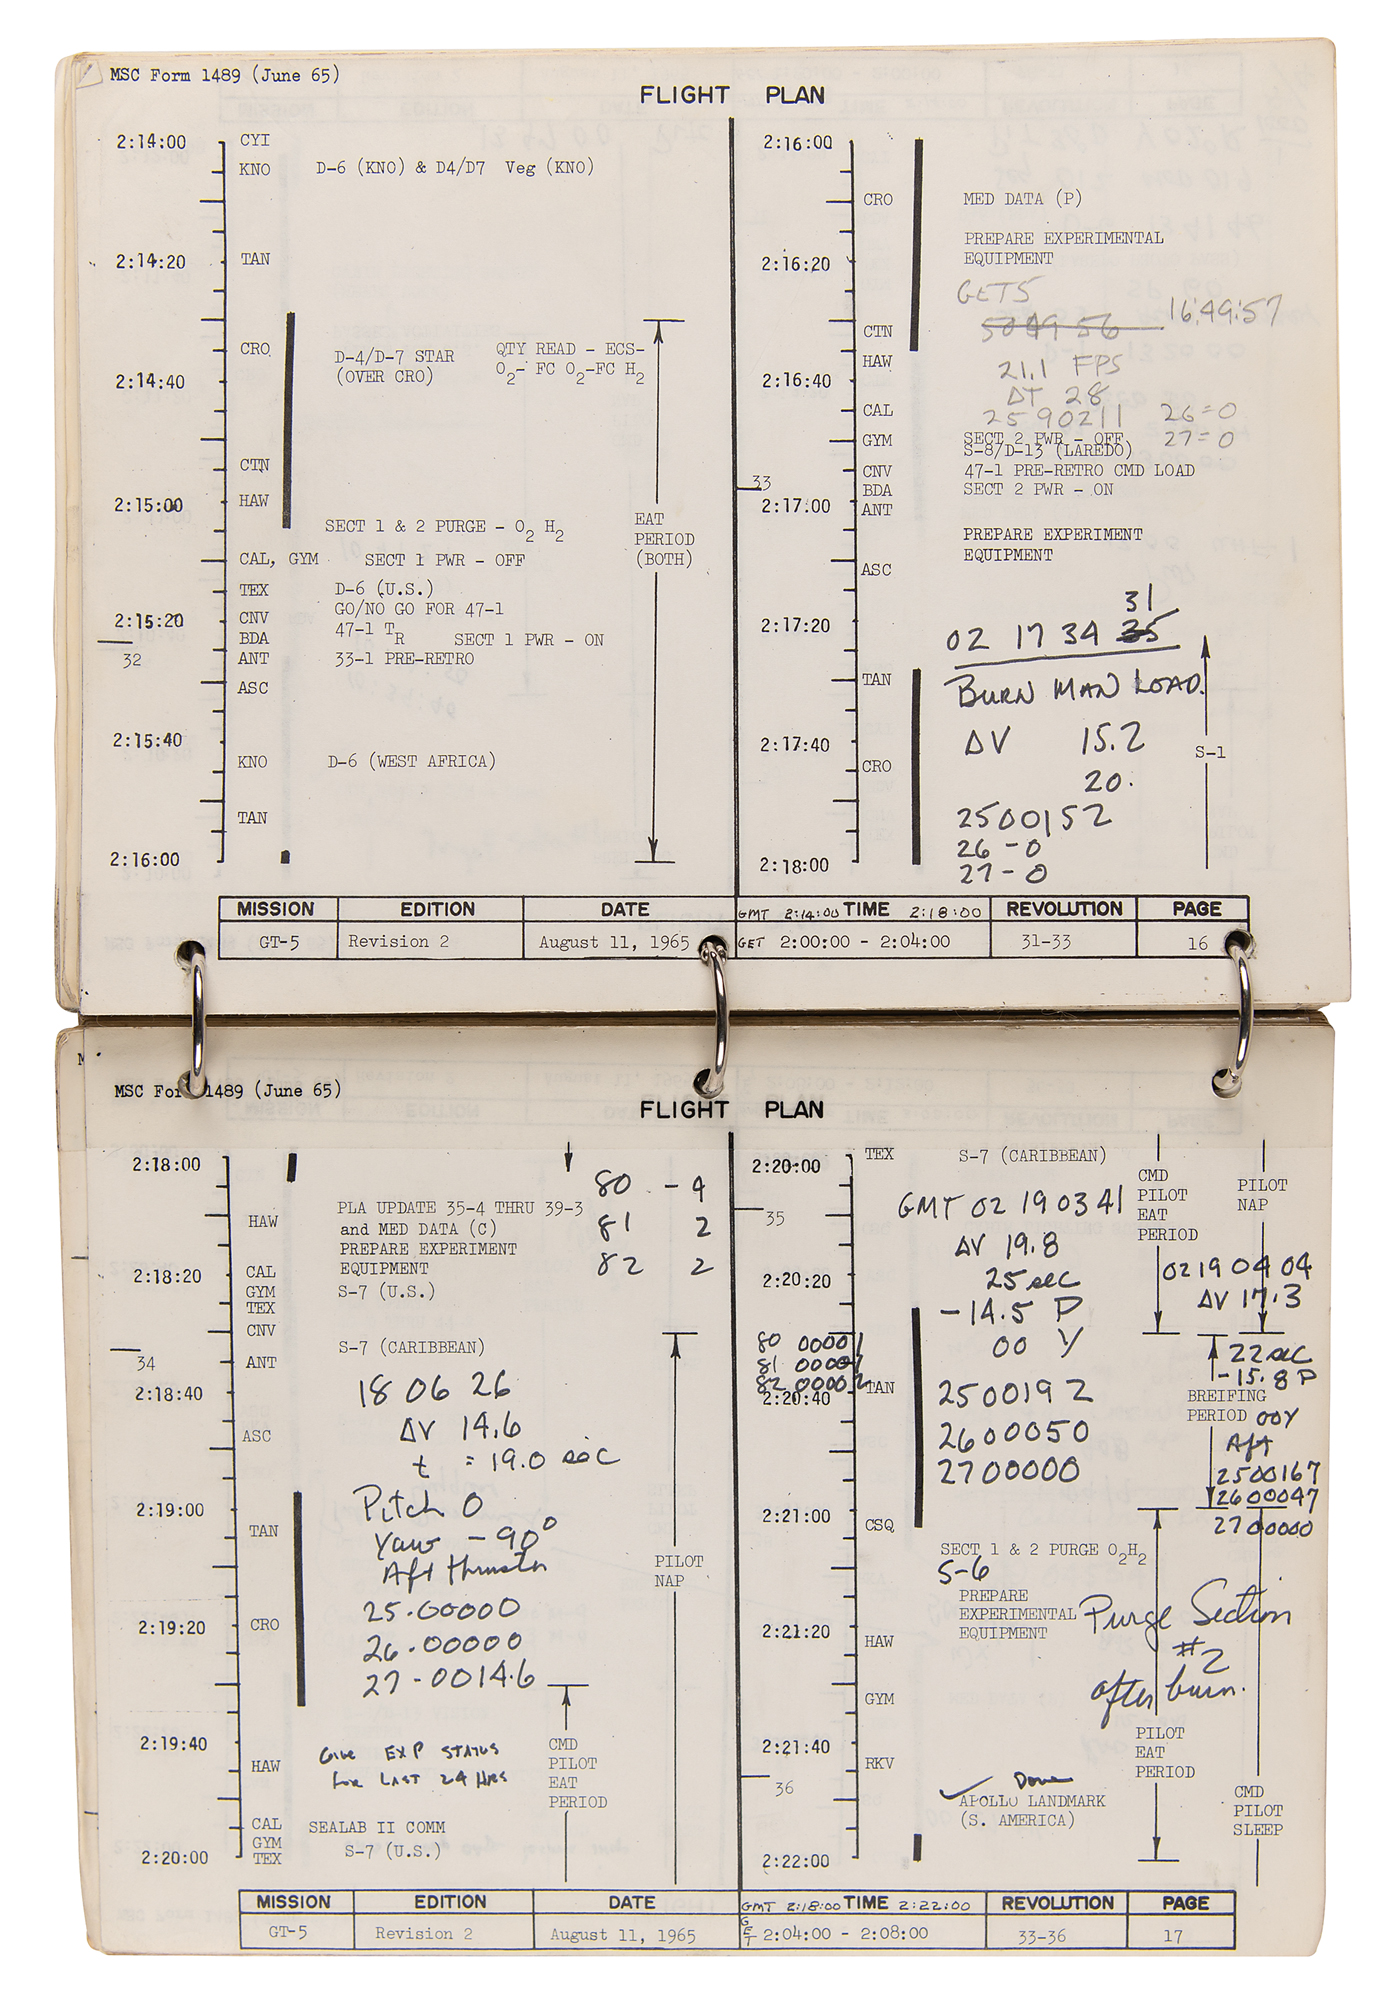 MSC Form 1489 (June 65)
FLIGHT PLAN
2:14:00 CYI
KNO D-6 (KNO) & D4/D7 Veg (KNO)
2:14:20 TAN
CRO D-4/D-7 STAR QTY READ - ECS-
(OVER CRO) O2- FC O2-FC H2
2:14:40
CTN
2:15:00 HAW
SECT 1 & 2 PURGE - O2 H2
EAT
PERIOD
(BOTH)
CAL, GYM SECT 1 PWR - OFF
TEX D-6 (U.S.)
GO/NO GO FOR 47-1
2:15:20 CNV
47-1 TR SECT 1 PWR - ON
BDA
32
ANT 33-1 PRE-RETRO
ASC
2:15:40
KNO D-6 (WEST AFRICA)
TAN
2:16:00
2:16:00
CRO MED DATA (P)
PREPARE EXPERIMENTAL
EQUIPMENT
2:16:20
GET5
50 49 56 16:49:57
CTN
HAW 21.1 FPS
2:16:40
ΔT 28
CAL 2590211 26=0
GYM SECT 2 PWR - OFF 27=0
S-8/D-13 (LAREDO)
CNV 47-1 PRE-RETRO CMD LOAD
33
BDA SECT 2 PWR - ON
2:17:00 ANT
PREPARE EXPERIMENT
EQUIPMENT
ASC
31
2:17:20
02 17 34 35
TAN BURN MAN LOAD.
2:17:40 ΔV 15.2
S-1
CRO
20.
2500152
26 - 0
2:18:00
27 - 0
MISSION EDITION DATE GMT 2:14:00 TIME 2:18:00 REVOLUTION PAGE
GT-5 Revision 2 August 11, 1965 GET 2:00:00 - 2:04:00 31-33 16
MSC Fo 1489 (June 65)
FLIGHT PLAN
2:18:00
80 - 4
PLA UPDATE 35-4 THRU 39-3
HAW and MED DATA (C) 81 2
PREPARE EXPERIMENT
EQUIPMENT 82 2
2:18:20 CAL
GYM S-7 (U.S.)
TEX
CNV
S-7 (CARIBBEAN)
34 ANT
2:18:40 18 06 26
ΔV 14.6
ASC
t = 19.0 sec
2:19:00 Pitch 0
TAN
Yaw - 90°
Aft thruster
PILOT
NAP
25.00000
2:19:20 CRO
26.00000
27 - 0014.6
2:19:40
GIVE EXP STATUS
FOR LAST 24 HRS
HAW
CMD
PILOT
EAT
PERIOD
CAL SEALAB II COMM
GYM
S-7 (U.S.)
2:20:00 TEX
2:20:00 TEX S-7 (CARIBBEAN)
CMD
PILOT
EAT
PERIOD
PILOT
NAP
35
GMT 02 19 03 41
ΔV 19.8
2:20:20 25 sec
0219 04 04
ΔV 17.3
-14.5 P
00 Y
80 00001
81 00001
82 00002
22 sec
-15.8 P
2:20:40 TAN 2500192
BREIFING
PERIOD 00Y
Aft
2600050
2700000
2500167
2600047
2700000
2:21:00
CSQ
SECT 1 & 2 PURGE O2H2
S-6
PREPARE
EXPERIMENTAL
EQUIPMENT
Purge Section
#2
after burn.
2:21:20
HAW
GYM
PILOT
EAT
PERIOD
2:21:40
RKV
36
Done
APOLLO LANDMARK
(S. AMERICA)
CMD
PILOT
SLEEP
2:22:00
MISSION EDITION DATE GMT 2:18:00 TIME 2:22:00 REVOLUTION PAGE
GT-5 Revision 2 August 11, 1965 GET 2:04:00 - 2:08:00 33-36 17